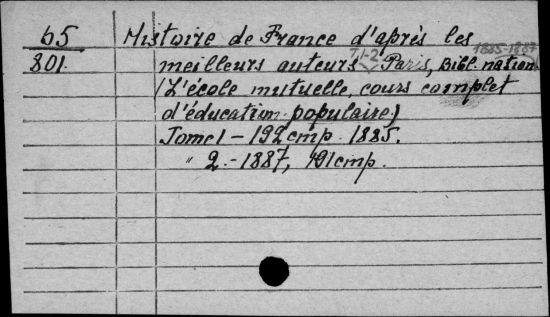 65 Histoire de France d'après les
801. meilleurs auteurs T.1-2 Paris, Bibl. nation. 1885-1887
(L'école mutuelle, cours complet
d'éducation populaire)
Tome 1 - 192 cmp. 1885.
" 2. - 1887, 191 cmp.